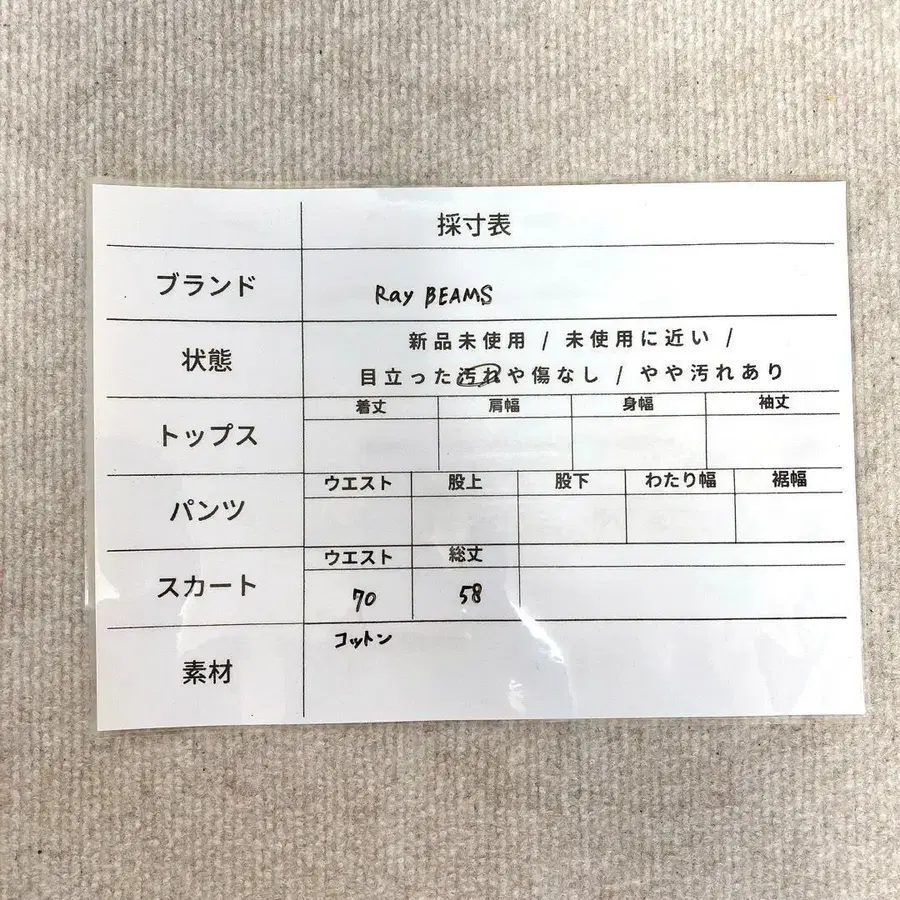 採寸表
ブランド Ray BEAMS
状態 新品未使用 / 未使用に近い /
目立った汚れや傷なし / やや汚れあり
トップス 着丈 肩幅 身幅 袖丈
パンツ ウエスト 股上 股下 わたり幅 裾幅
スカート ウエスト 総丈
70 58
素材 コットン